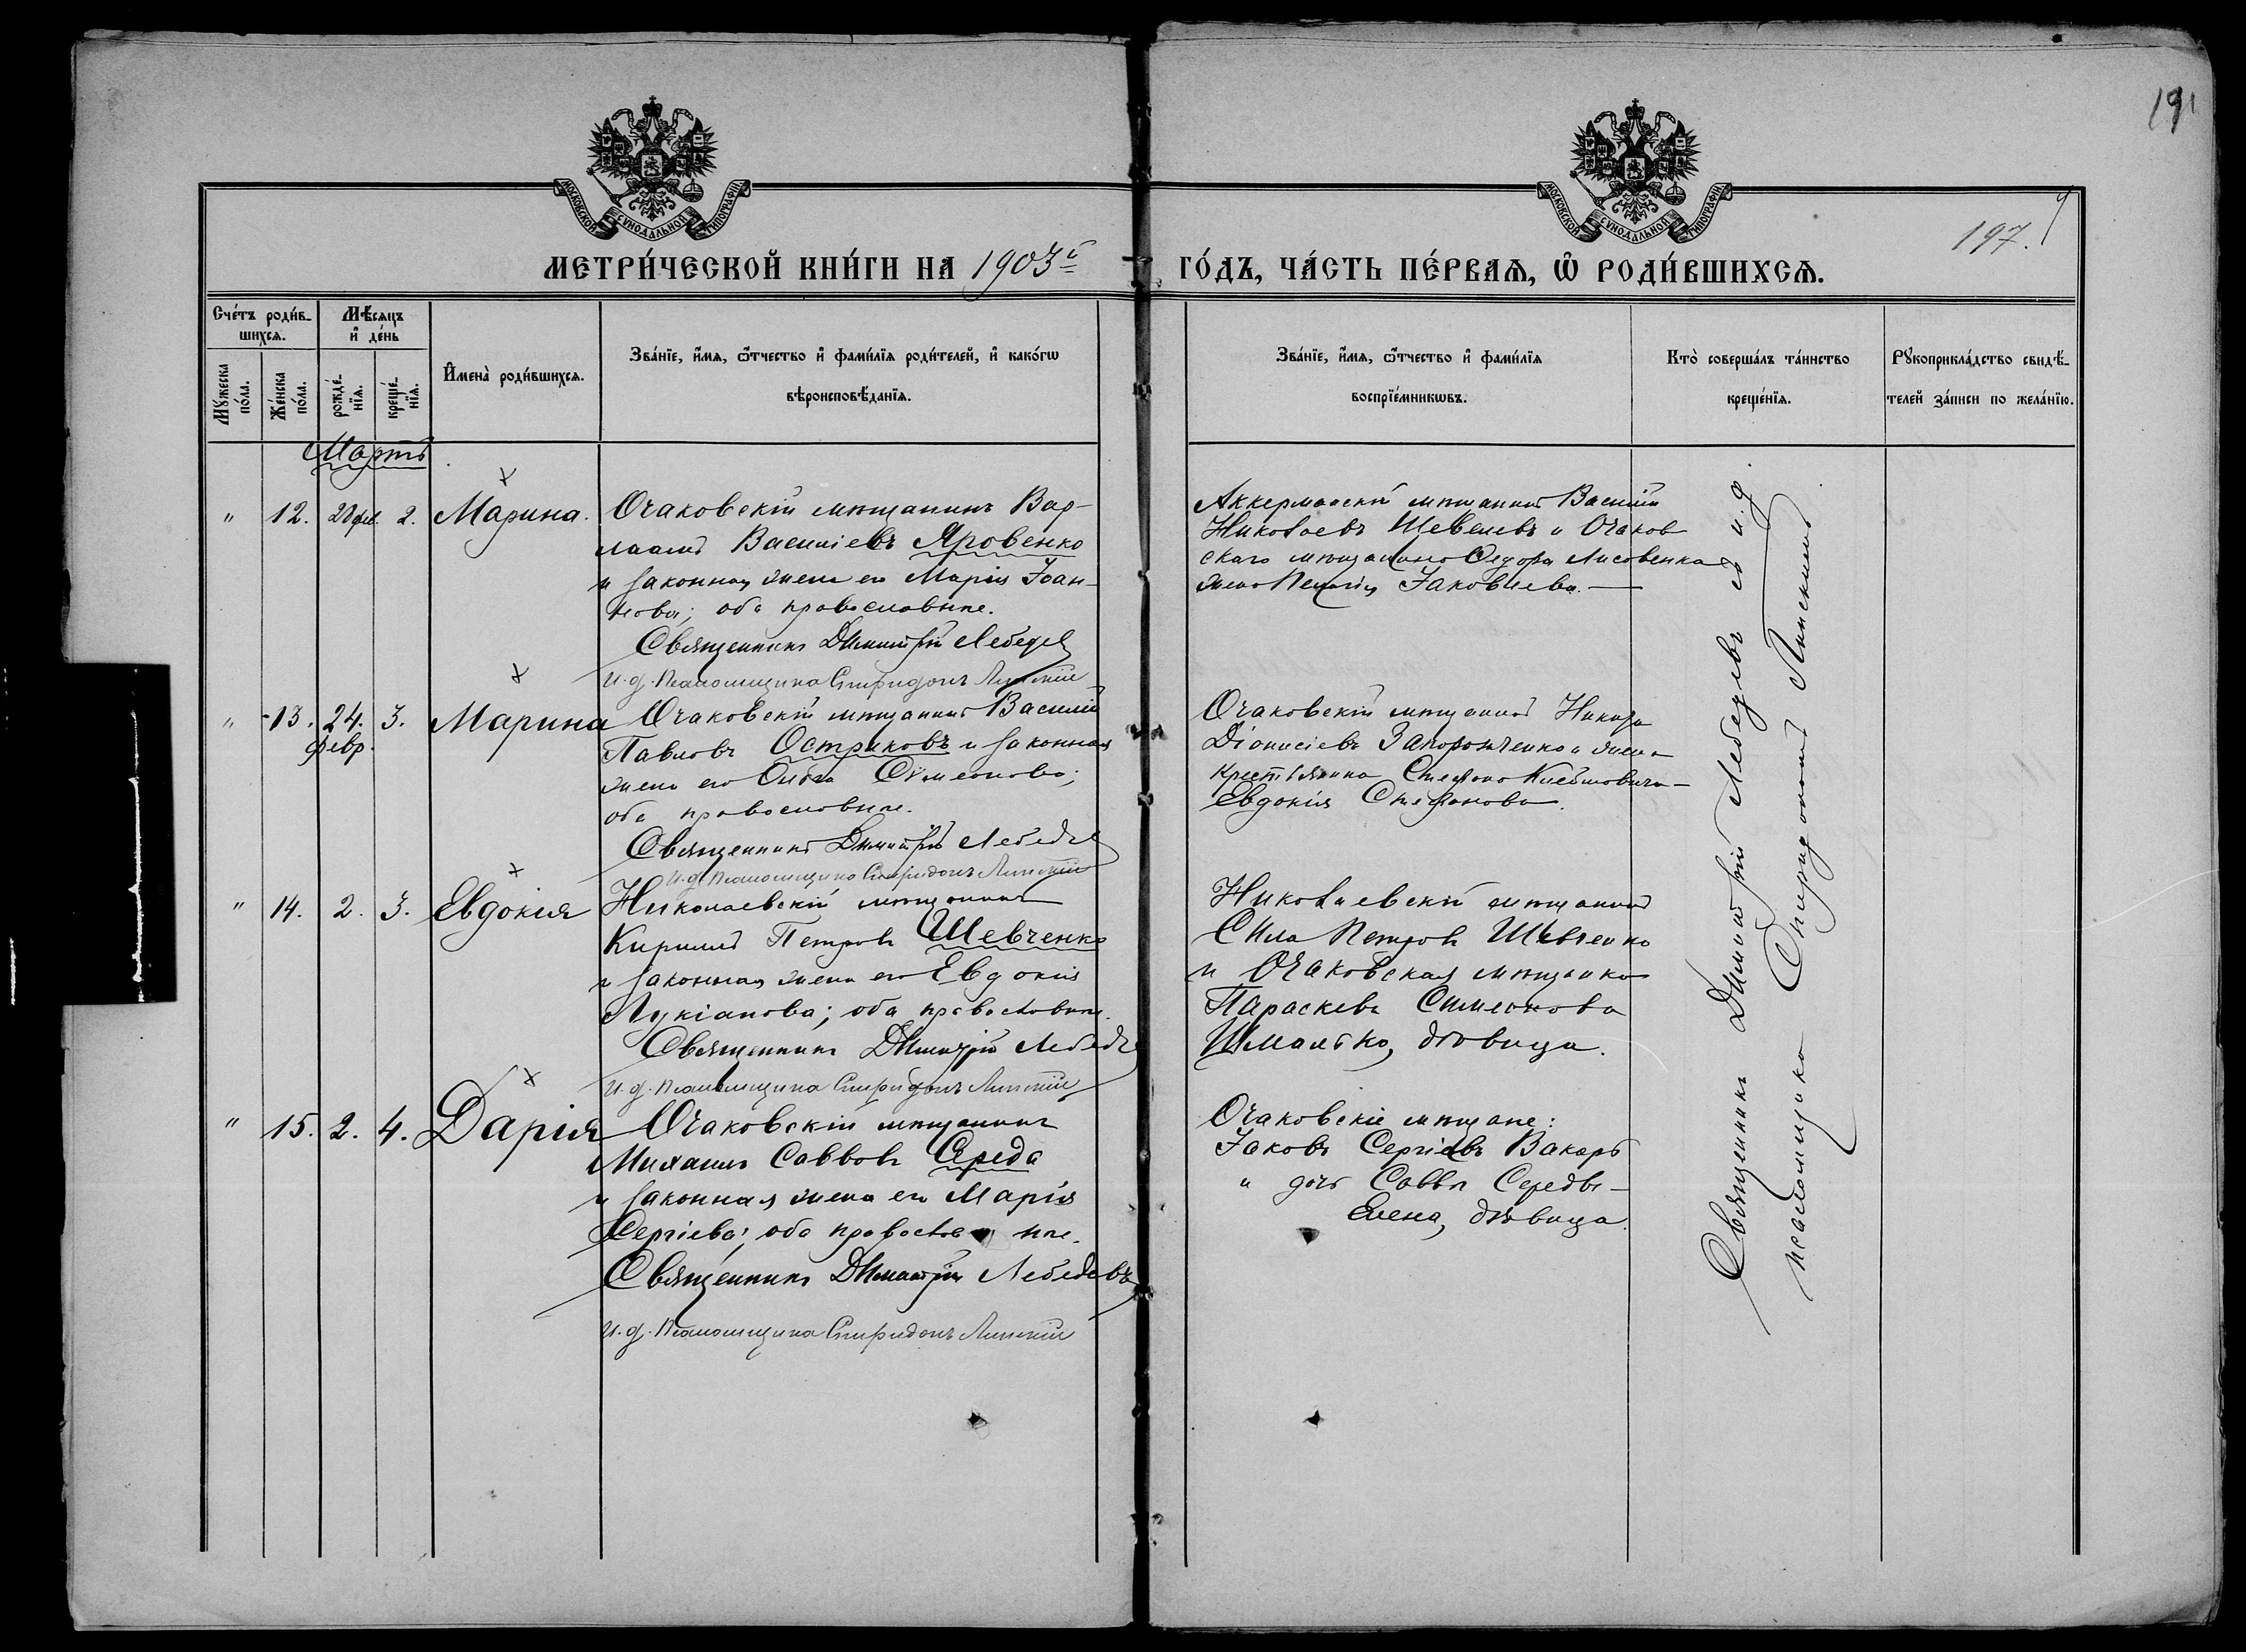 191
197.
МОСКОВСКОЙ СУНОДАЛЬНОЙ ТИПОГРАФІИ
МОСКОВСКОЙ СУНОДАЛЬНОЙ ТИПОГРАФІИ
МЕТРИ́ЧЕСКОЙ КНИ́ГИ НА 1903й
ГО́ДЪ, ЧА́СТЬ ПЕ́РВАѦ, Ѡ҆ РОДИ́ВШИХСѦ.
Сче́тъ роди́в-
шихсѧ.
Мѣ́сѧцъ
и҆ де́нь
Мꙋ́жеска по́ла.
Же́нска по́ла.
рожде́-нїѧ.
креще́-нїѧ.
И҆мена̀ роди́вшихсѧ.
Зва́нїе, и҆́мѧ, ѻ҆́тчество и҆ фами́лїѧ роди́телей, и҆ како́гѡ
вѣроисповѣ́данїѧ.
Зва́нїе, и҆́мѧ, ѻ҆́тчество и҆ фами́лїѧ
воспрїе́мникѡвъ.
Кто̀ соверша́лъ та́инство
креще́нїѧ.
Рꙋкоприкла́дство свидѣ́-
телей за́писи по жела́нїю.
Мартъ
" 12. 28 фев. 2. Марина.
Очаковскій мѣщанинъ Вар-
лаамъ Василіевъ Яровенко
и законная жена его Марія Іоан-
нова; оба православные.
Священникъ Димитрій Лебедев
и. д. Псаломщика Спиридонъ Липскій
Аккерманскій мѣщанинъ Василій
Николаевъ Шевелевъ и Очаков
скаго мѣщанина Ѳедора Лисовенка
жена Пелагія Іаковлева.
" 13. 24. февр. 3. Марина
Очаковскій мѣщанинъ Василій
Павловъ Остриковъ и законная
жена его Ольга Сѵмеонова;
оба православные.
Священникъ Димитрій Лебедев
и. д. Псаломщика Спиридонъ Липскій
Очаковскій мѣщанинъ
Діонисіевъ Запорожченко и жена
крестьянина Стефана
Евдокія Стефанова.
" 14. 2. 3. Евдокія
Николаевскій мѣщанинъ
Кириллъ Петровъ Шевченко
и законная жена его Евдокія
Лукіанова; оба православные.
Священникъ Димитрій Лебедев
и. д. Псаломщика Спиридонъ Липскій
Николаевскій мѣщанинъ
Сила Петровъ Шевченко
и Очаковская мѣщанка
Параскева Симеонова
Шмалько, дѣвица.
" 15. 2. 4. Дарія
Очаковскій мѣщанинъ
Михаилъ Саввовъ Середа
и законная жена его Марія
Сергіева; оба православные.
Священникъ Димитрій Лебедевъ
и. д. Псаломщика Спиридонъ Липскій
Очаковскіе мѣщане:
Іаковъ Сергіевъ Вакарь
и дочь Саввы Середы —
Елена, дѣвица.
Священникъ Димитрій Лебедевъ съ и. д.
псаломщика Спиридономъ Липскимъ